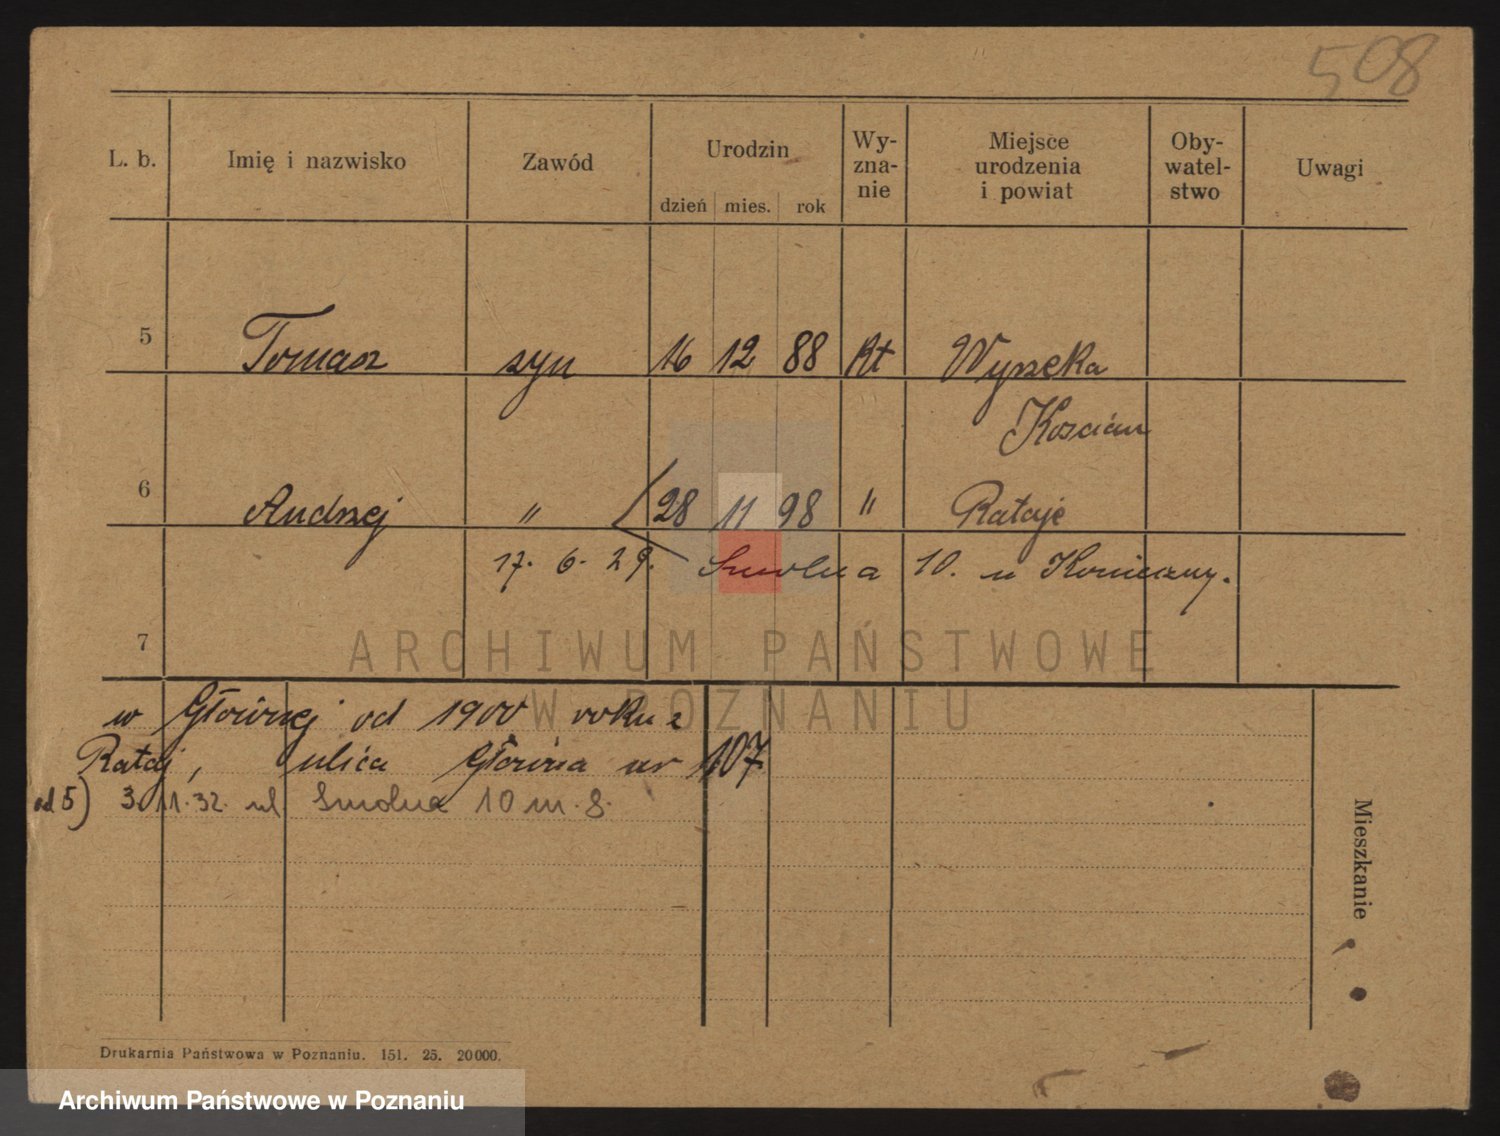 508
L. b. Imię i nazwisko Zawód Urodzin Wy-zna-nie Miejsce urodzenia i powiat Oby-watel-stwo Uwagi
dzień mies. rok
5 Tomasz syn 16 12 88 kt Wyszeka
Kościan
6 Andrzej " 28 11 98 " Rataje
17. 6. 29. Smolna 10. u Konieczny.
7
w Głównej od 1900 roku z
Rataj, ulica Główna nr 107
od 5) 3.11.32. ul Smolna 10 m. 8.
Mieszkanie
Drukarnia Państwowa w Poznaniu. 151. 25. 20000.
ARCHIWUM PAŃSTWOWE
W POZNANIU
Archiwum Państwowe w Poznaniu